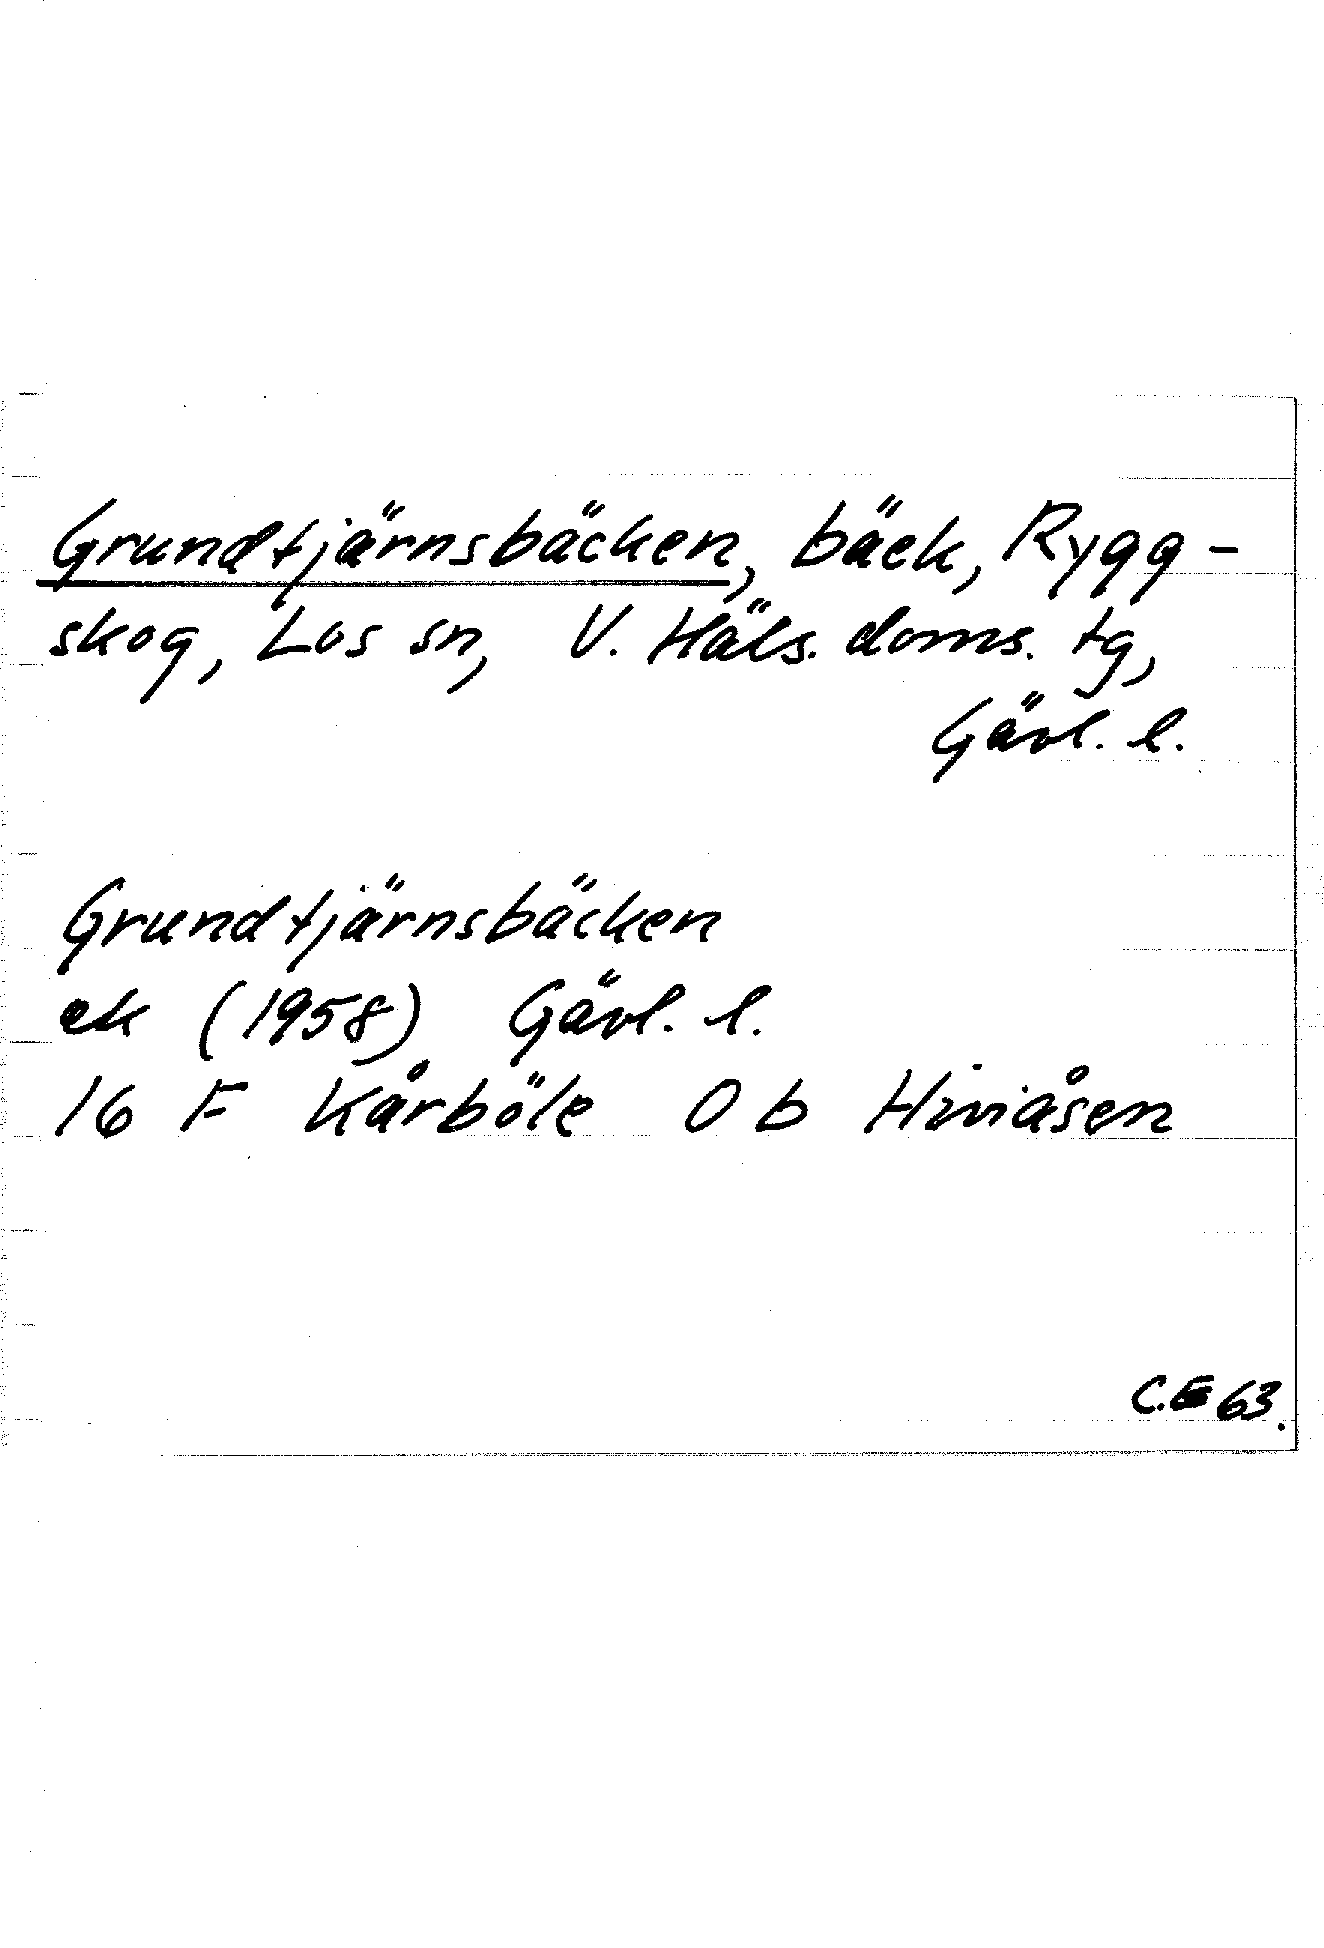 Grundtjärnsbäcken, bäck, Rygg-
skog, Los sn, V. Häls. doms. tg,
Gävl. l.
Grundtjärnsbäcken
ek (1958) Gävl. l.
16 F Kårböle 0 b Hiviåsen
C.E 63.